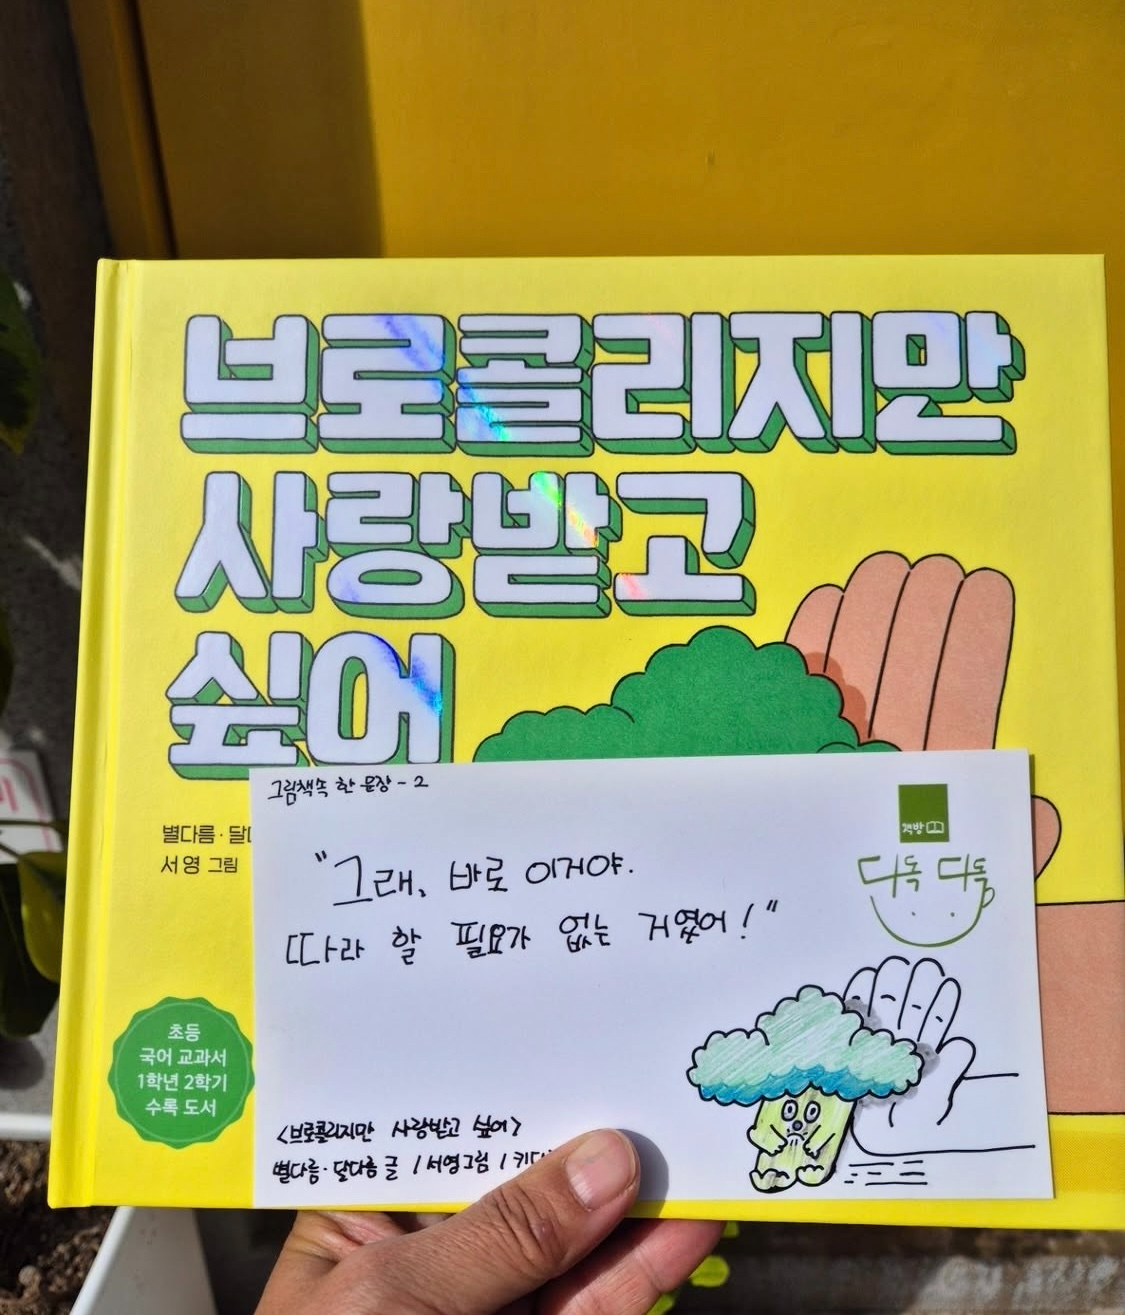 브로콜리지만
사랑받고
싶어
별다름·달
서영 그림
초등
국어 교과서
1학년 2학기
수록 도서
그림책속 한 문장 - 2
책방
다독 다독
"그래, 바로 이거야.
따라 할 필요가 없는 거였어!"
<브로콜리지만 사랑받고 싶어>
별다름·달다름 글 / 서영그림 / 키다